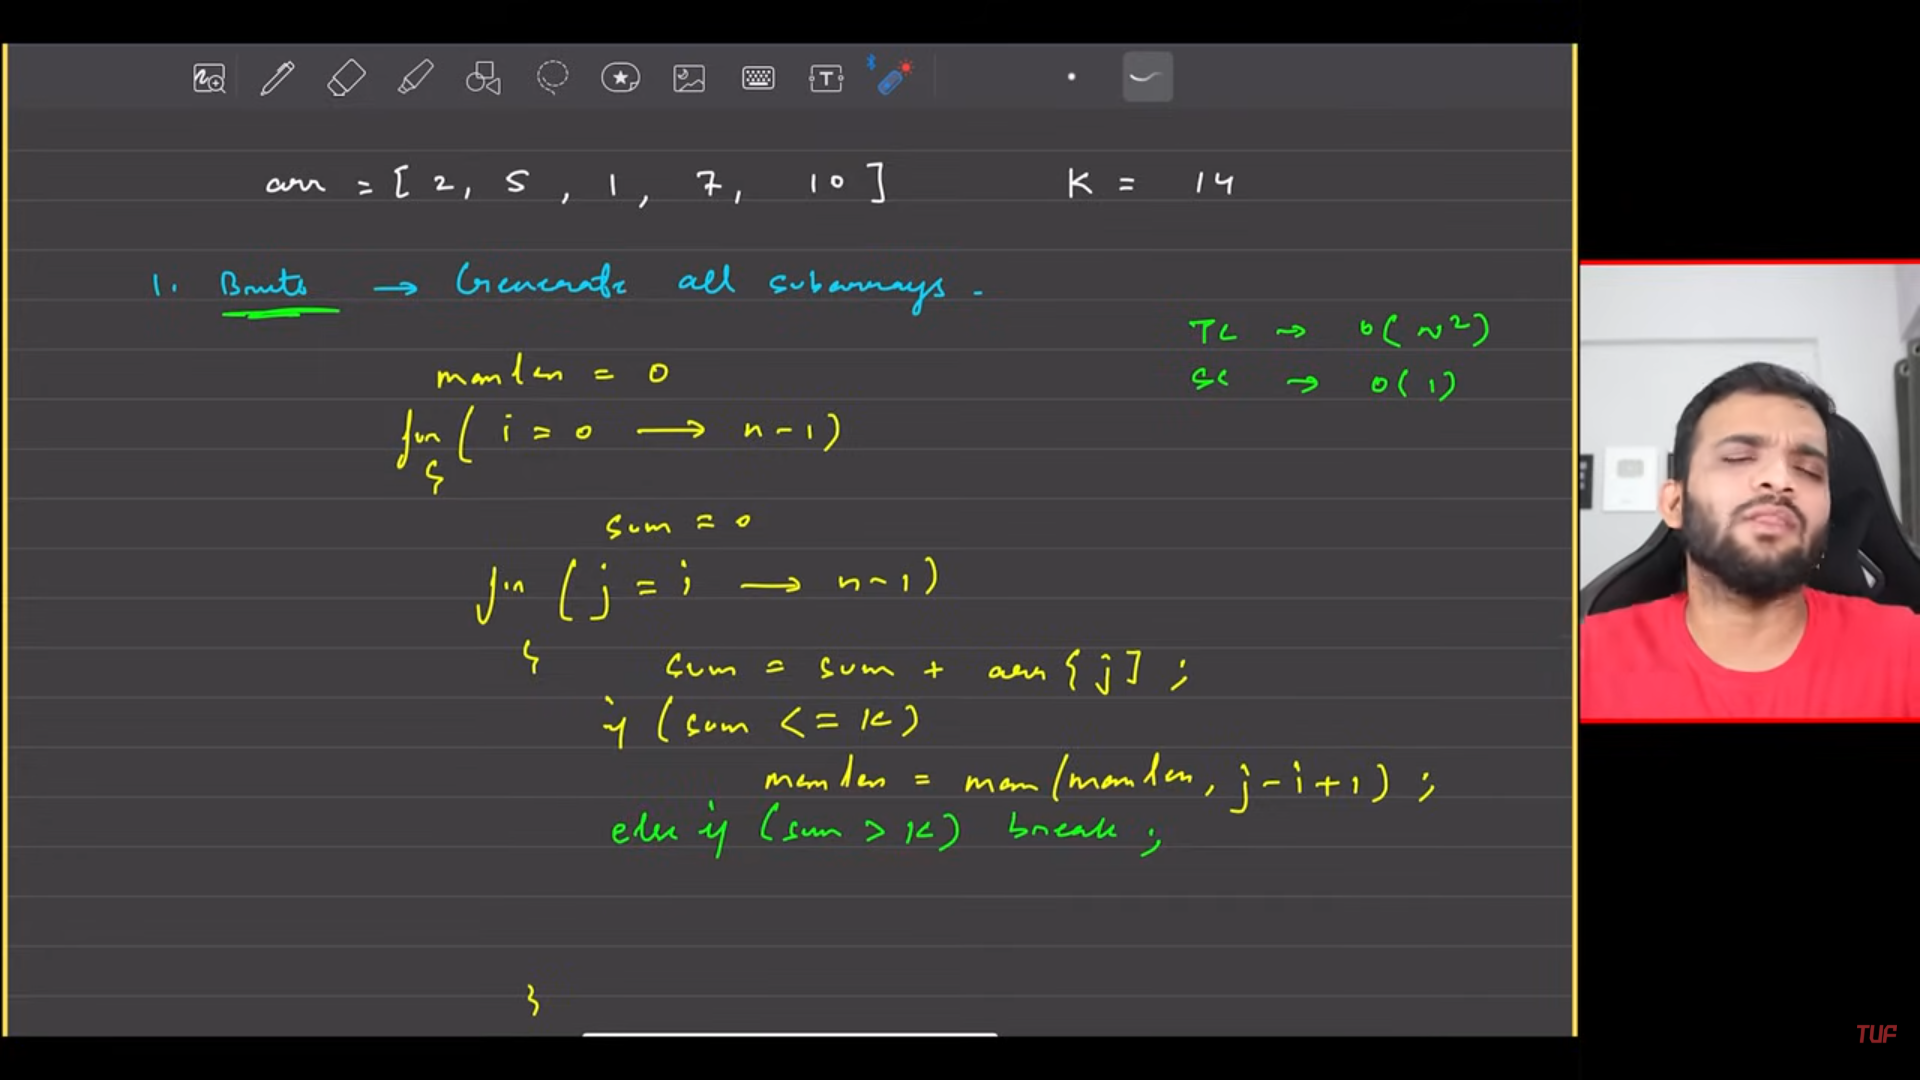 arr = [ 2, 5, 1, 7, 10 ] K = 14
1. Brute → Generate all subarrays.
TC → O( N2 )
SC → O( 1 )
maxlen = 0
for ( i = 0 → n-1 )
{
sum = 0
for ( j = i → n-1 )
{
sum = sum + arr[ j ] ;
if ( sum <= K )
maxlen = max( maxlen, j-i+1 ) ;
else if ( sum > K ) break ;
}
TUF